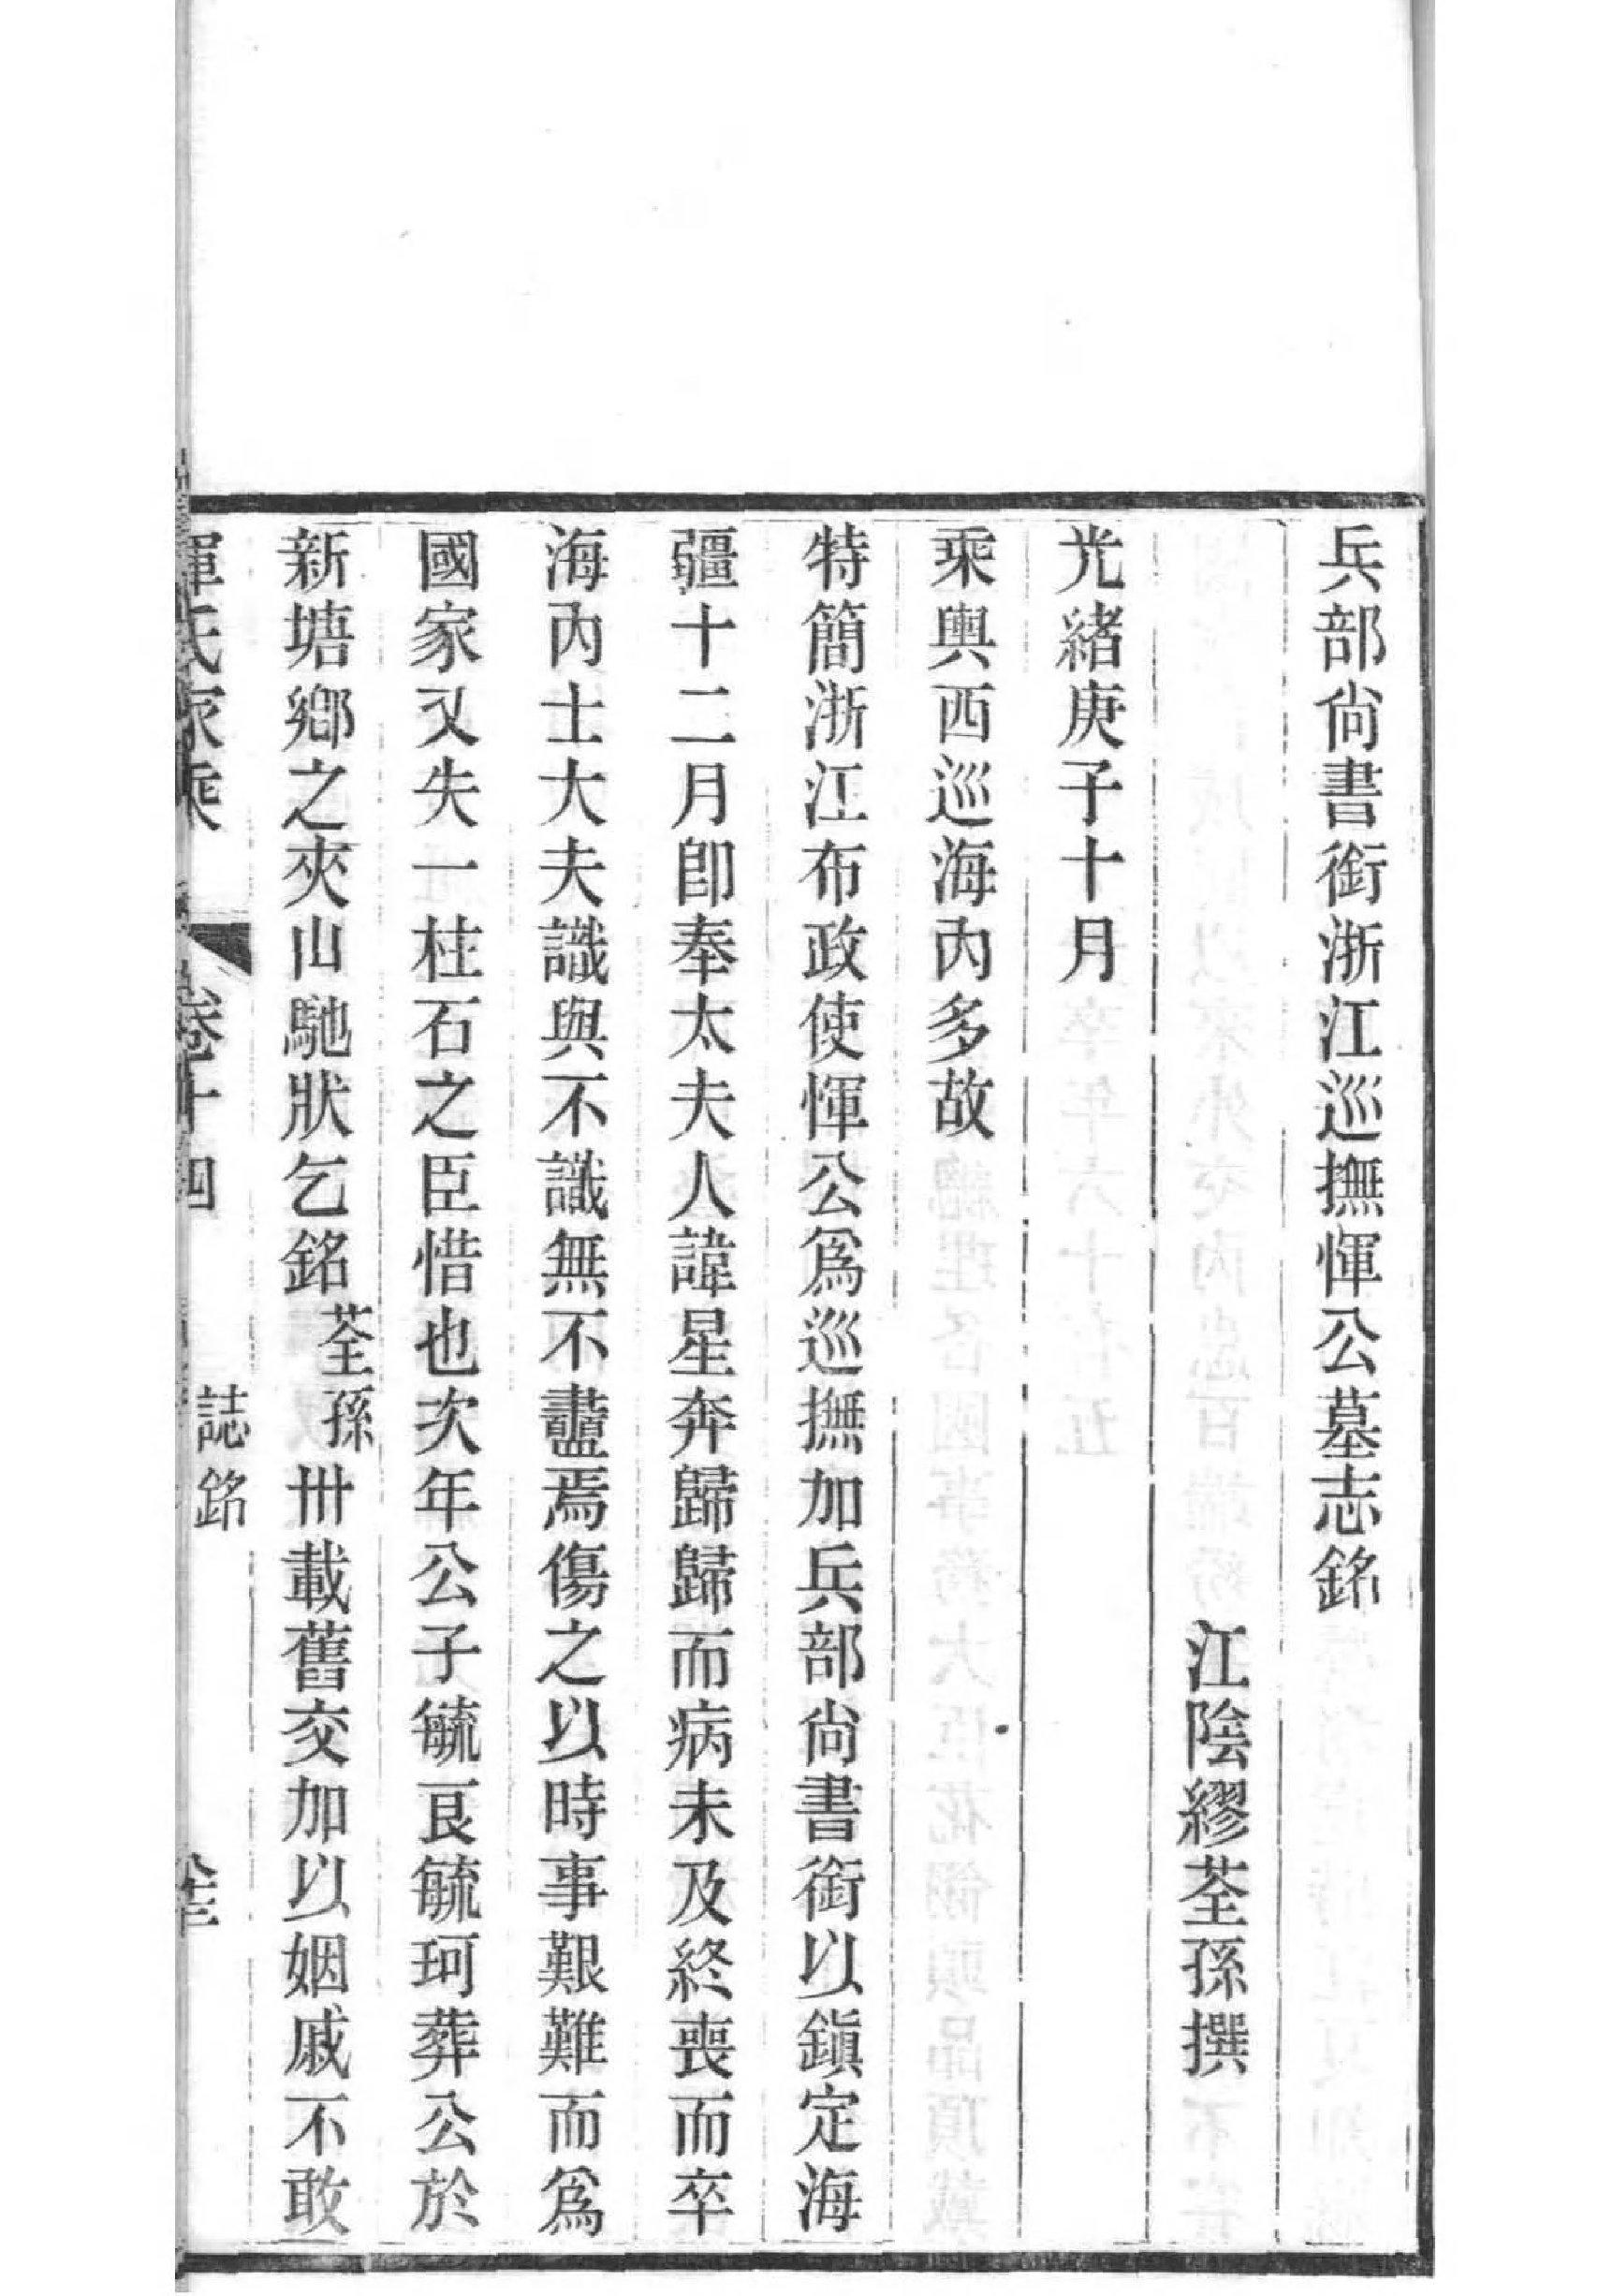 兵部尚書銜浙江巡撫惲公墓志銘
江陰繆荃孫撰
光緒庚子十月
乘輿西巡海內多故
特簡浙江布政使惲公爲巡撫加兵部尚書銜以鎭定海
疆十二月卽奉太夫人諱星奔歸歸而病未及終喪而卒
海內士大夫識與不識無不衋焉傷之以時事艱難而爲
國家又失一柱石之臣惜也次年公子毓良毓珂葬公於
新塘鄉之夾山馳狀乞銘荃孫卅載舊交加以姻戚不敢
惲氏家乘 卷十四 誌銘